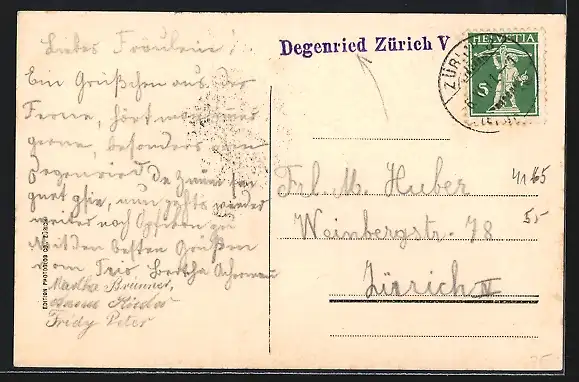 Liebes Fräulein!
Ein Grüßchen aus der
Ferne, hört man immer
gerne, besonders vom
Degenried. Da
nun gehts wieder
weiter nach
Mit den besten Grüßen
vom Trio, Bertha
Martha Brunner,
Rieder
Fridy Peter
EDITION PHOTOGLOB CO., ZÜRICH
Degenried Zürich V
HELVETIA
5
ZÜRICH
Frl. M. Huber
Weinbergstr. 78
Zürich IV
4165
5,-